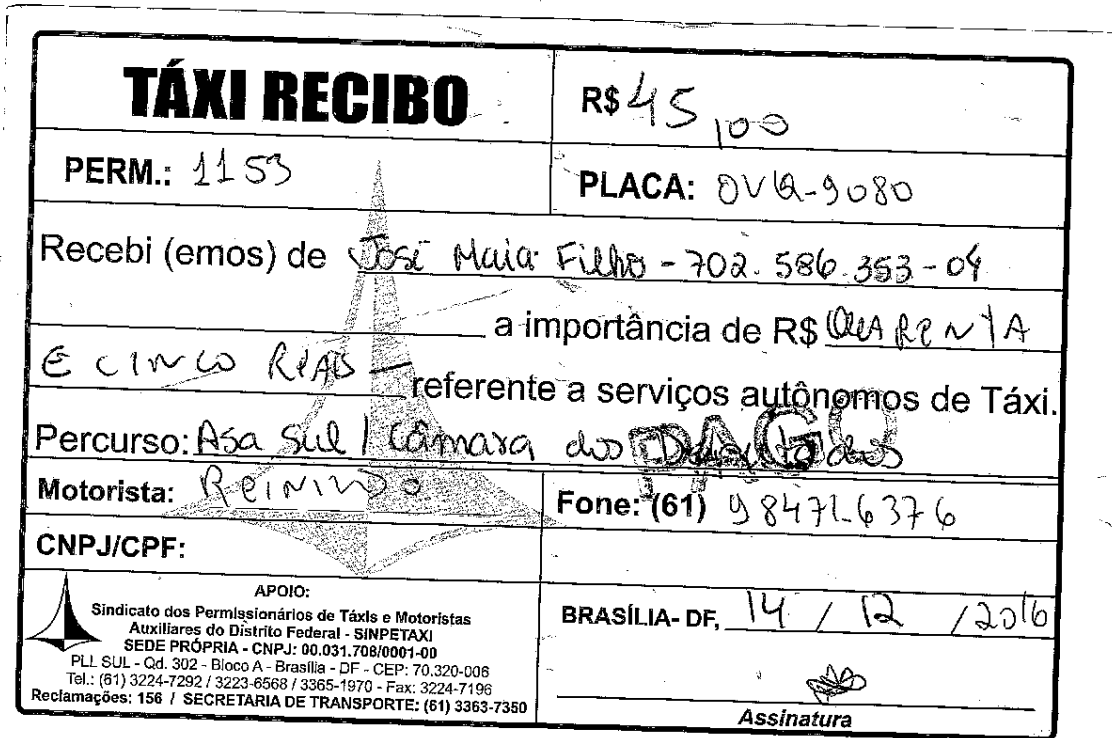 TÁXI RECIBO
R$ 45,00
PERM.: 1153
PLACA: OVQ-9080
Recebi (emos) de José Maia Filho - 702.586.353-04
a importância de R$ QUARENTA
E CINCO REAIS referente a serviços autônomos de Táxi.
Percurso: Asa Sul / Câmara dos Deputados
PAGO
Motorista:
Fone: (61) 98471-6376
CNPJ/CPF:
APOIO:
Sindicato dos Permissionários de Táxis e Motoristas
Auxiliares do Distrito Federal - SINPETAXI
SEDE PRÓPRIA - CNPJ: 00.031.708/0001-00
PLL SUL - Qd. 302 - Bloco A - Brasília - DF - CEP: 70.320-006
Tel.: (61) 3224-7292 / 3223-6568 / 3365-1970 - Fax: 3224-7196
Reclamações: 156 / SECRETARIA DE TRANSPORTE: (61) 3363-7350
BRASÍLIA- DF, 14 / 12 / 2016
Assinatura